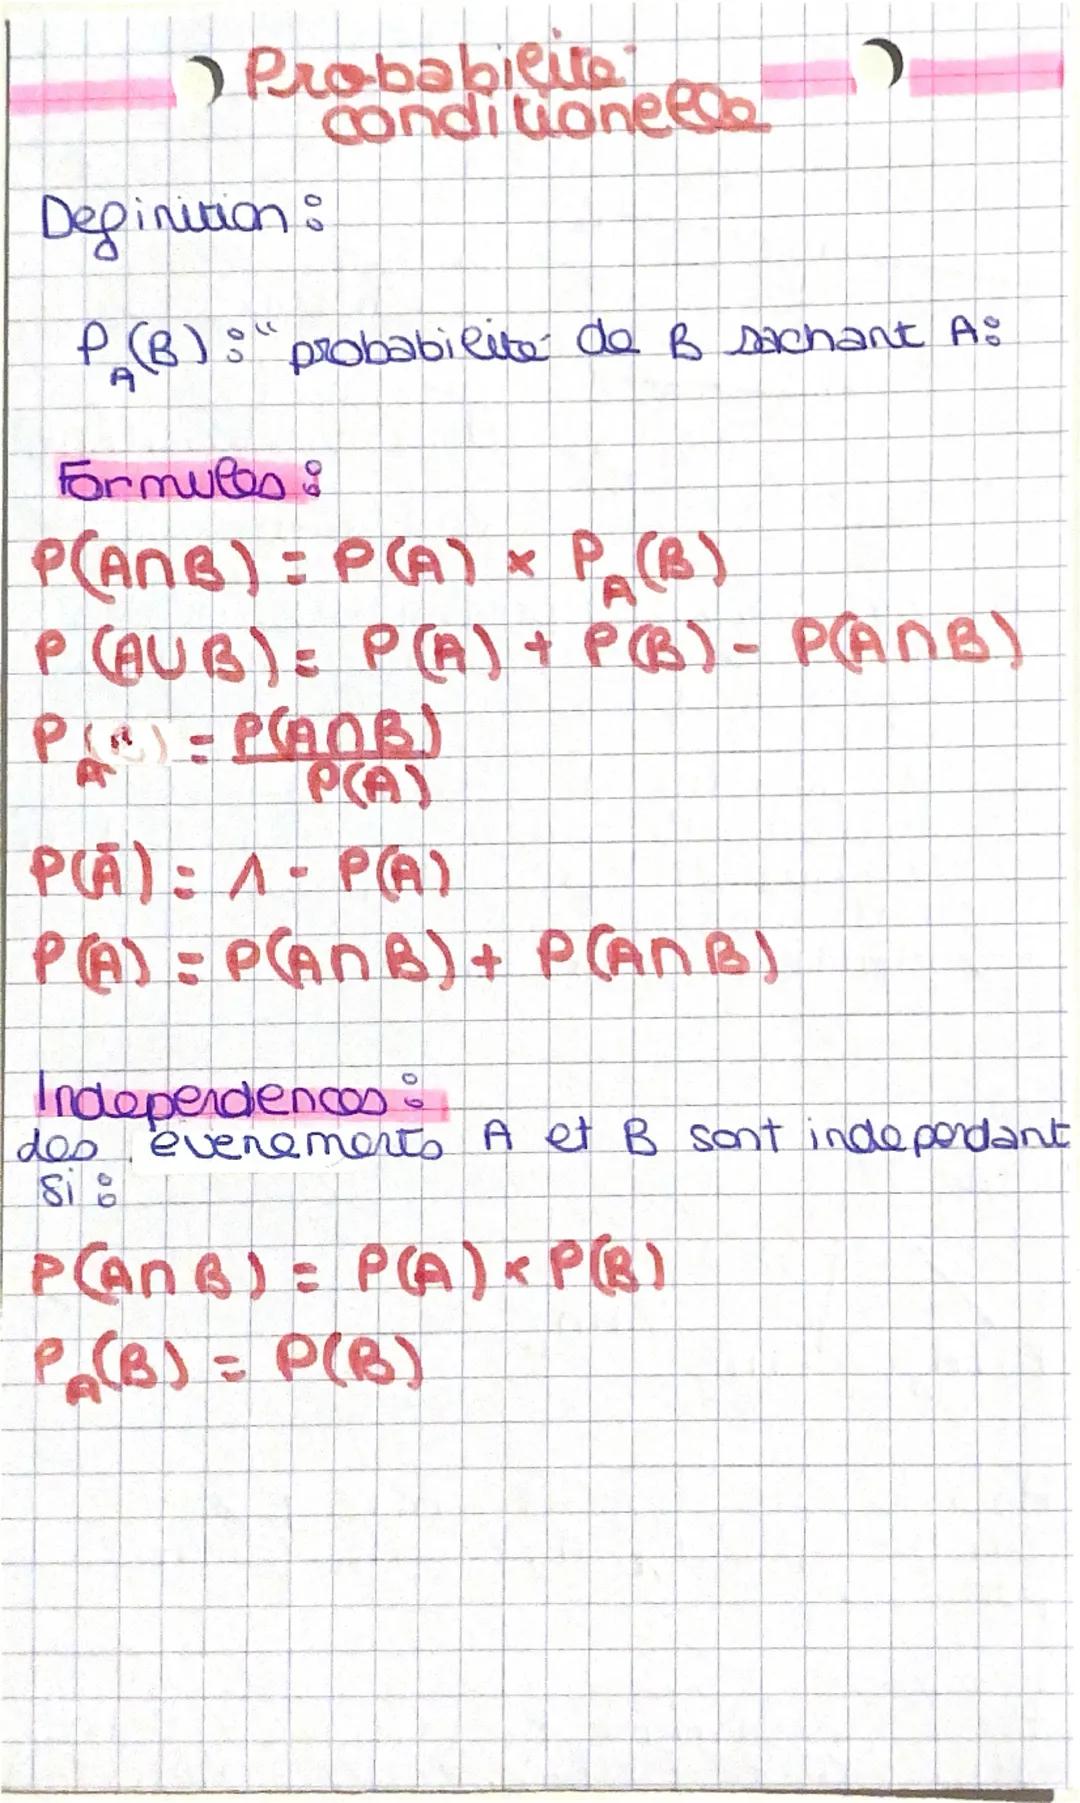 Probabilité
conditionelle
Definition :
P_A(B) : "probabilité de B sachant A:
Formules :
P(A∩B) = P(A) × P_A(B)
P(A∪B) = P(A) + P(B) - P(A∩B)
P_A( ) = P(A∩B) / P(A)
P(Ā) = 1 - P(A)
P(A) = P(A∩B) + P(A∩B)
Independences :
des évenements A et B sont independant
si :
P(A∩B) = P(A) × P(B)
P_A(B) = P(B)